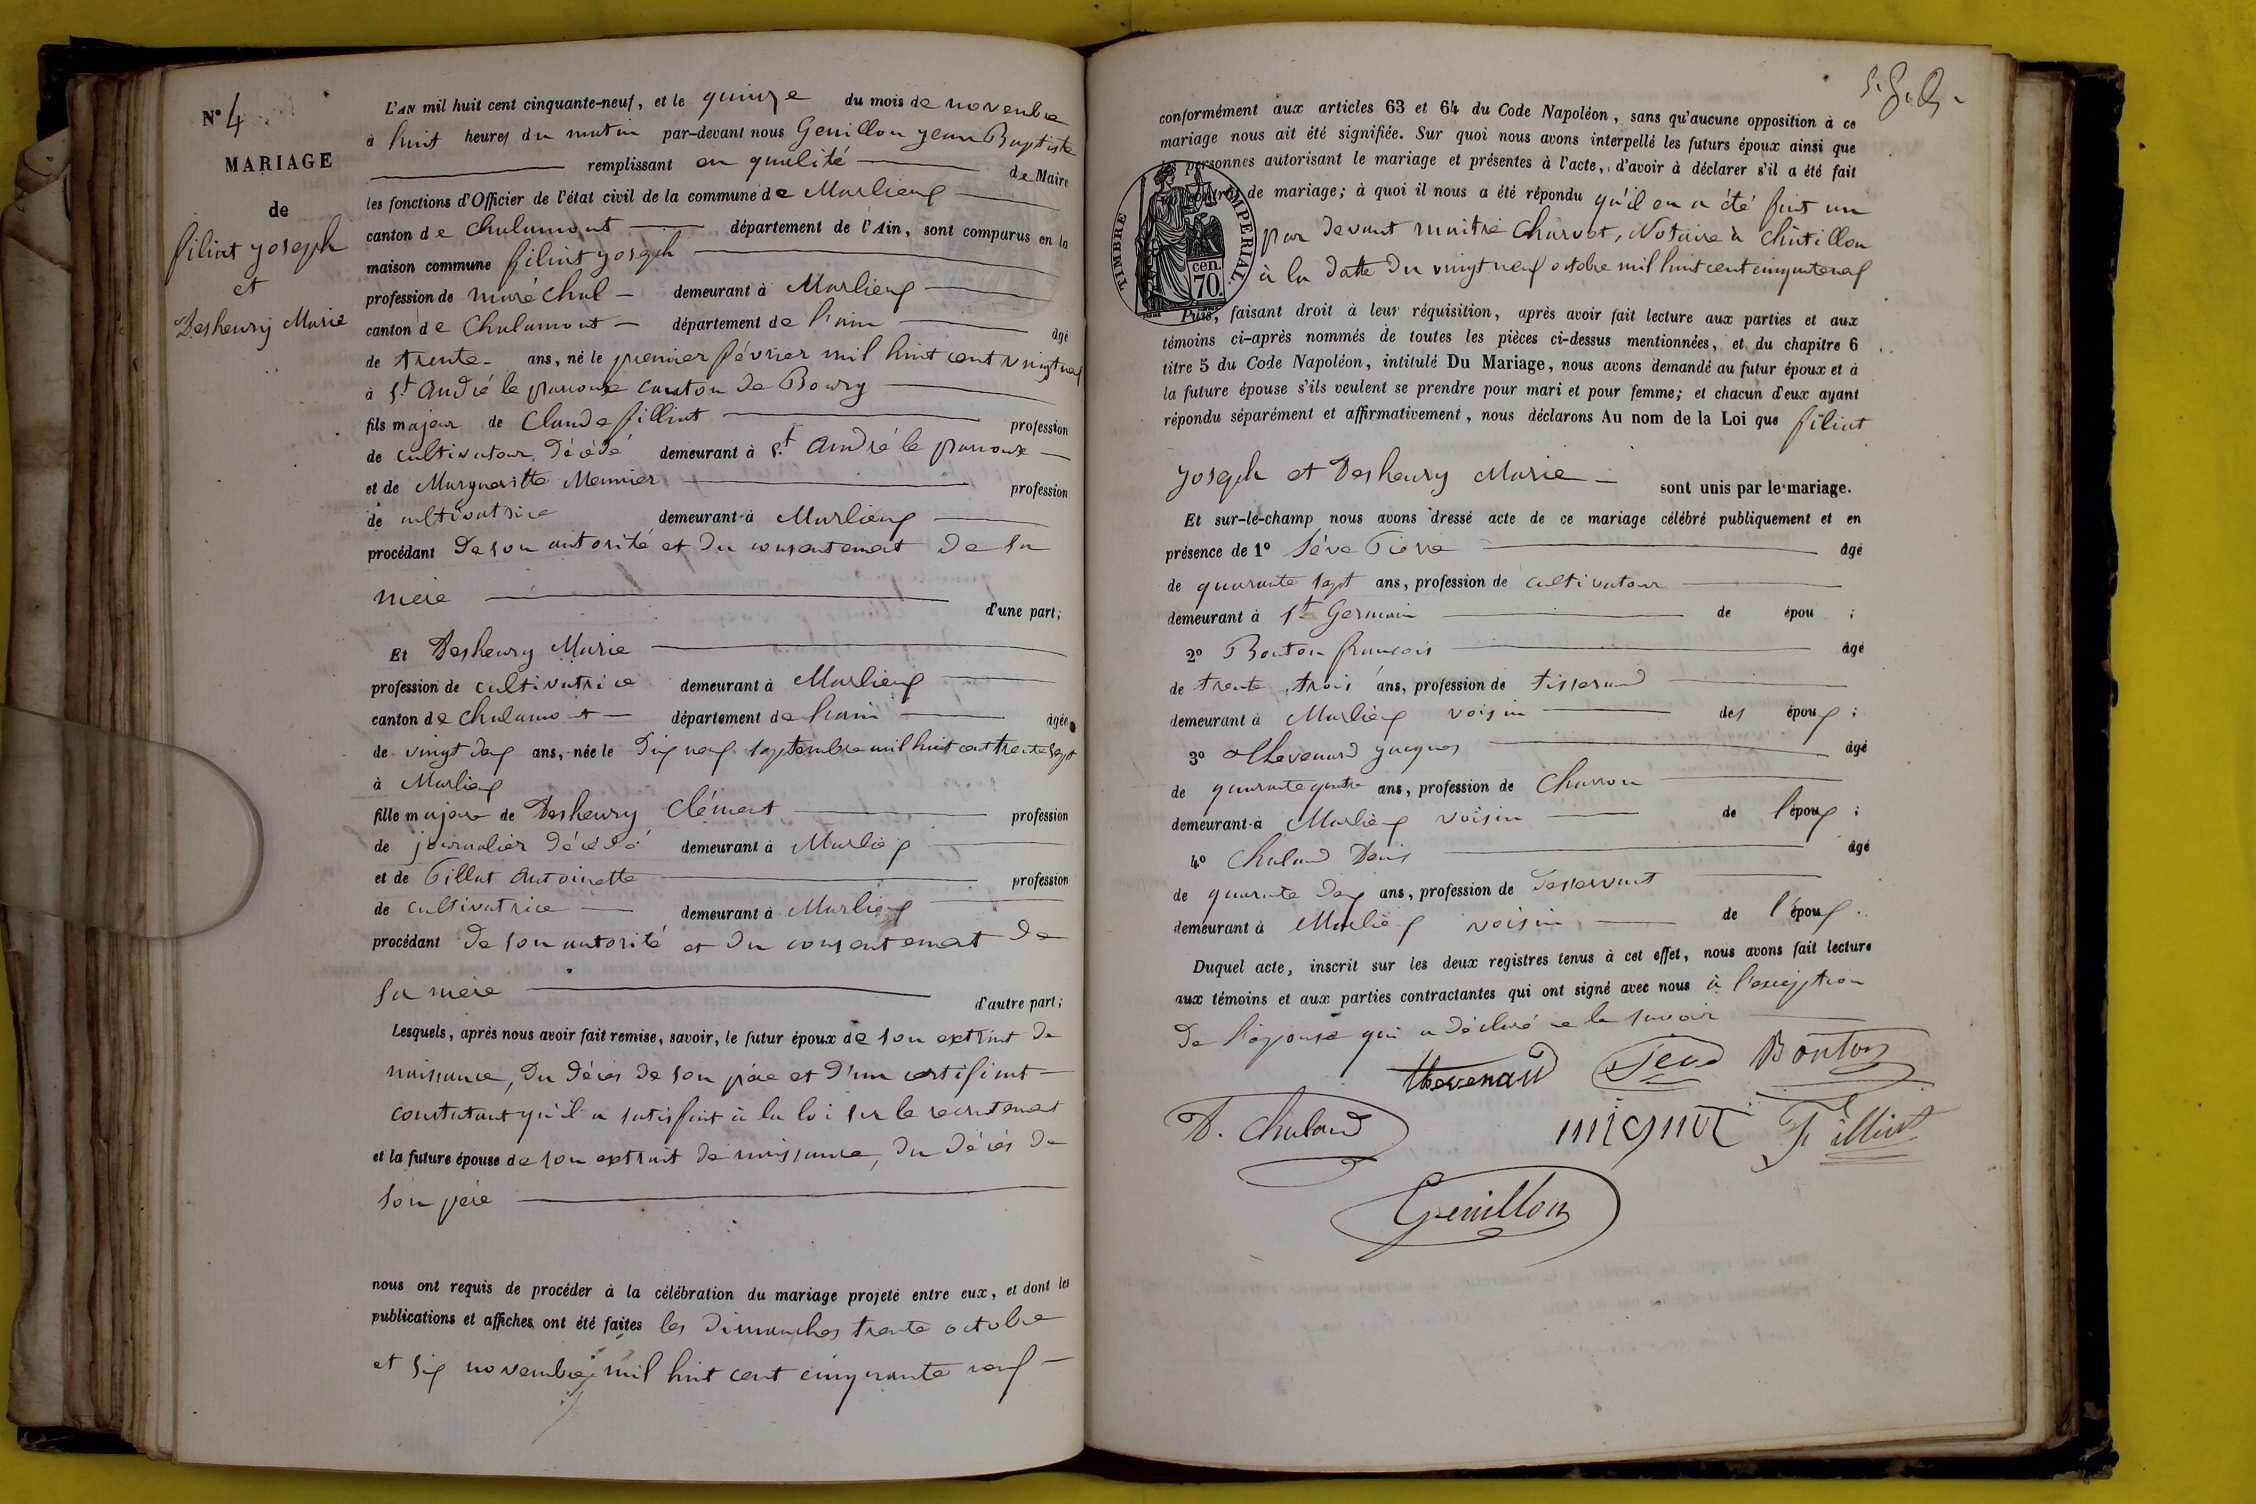 N° 4
MARIAGE
de
filiat joseph
et
Desheury Marie
L'AN mil huit cent cinquante-neuf, et le quinze du mois de novembre
à huit heures du matin par-devant nous Genillon jean Baptiste
remplissant en qualité de Maire
les fonctions d'Officier de l'état civil de la commune de Marlieux
canton de Chalamont département de l'Ain, sont comparus en la
maison commune filiat joseph
profession de maréchal demeurant à Marlieux
canton de Chalamont département de l'ain âgé
de trente ans, né le premier février mil huit cent vingt neuf
à St André le panoux canton de Bourg
fils majeur de Claude filliat profession
de cultivateur décédé demeurant à St André le panoux
et de Margueritte Meunier profession
de cultivatrice demeurant à Marlieux
procédant de son autorité et du consentement de sa
mère d'une part;
Et Desheury Marie
profession de cultivatrice demeurant à Marlieux
canton de Chalamont département de l'ain âgée
de vingt deux ans, née le dix neuf septembre mil huit cent trente sept
à Marlieux
fille majeure de Desheury Clément profession
de journalier décédé demeurant à Marlieux
et de Pillat Antoinette profession
de cultivatrice demeurant à Marlieux
procédant de son autorité et du consentement de
sa mère d'autre part;
Lesquels, après nous avoir fait remise, savoir, le futur époux de son extrait de
naissance, du décès de son père et d'un certificat
constatant qu'il a satisfait à la loi sur le recrutement
et la future épouse de son extrait de naissance, du décès de
son père
nous ont requis de procéder à la célébration du mariage projeté entre eux, et dont les
publications et affiches ont été faites les dimanches trente octobre
et six novembre mil huit cent cinquante neuf
conformément aux articles 63 et 64 du Code Napoléon, sans qu'aucune opposition à ce
mariage nous ait été signifiée. Sur quoi nous avons interpellé les futurs époux ainsi que
les personnes autorisant le mariage et présentes à l'acte, d'avoir à déclarer s'il a été fait
contrat de mariage; à quoi il nous a été répondu qu'il en a été fait un
par devant maitre Charvet, Notaire à Châtillon
à la datte du vingt neuf octobre mil huit cent cinquante neuf
TIMBRE IMPERIAL
70 cen.
Puis, faisant droit à leur réquisition, après avoir fait lecture aux parties et aux
témoins ci-après nommés de toutes les pièces ci-dessus mentionnées, et du chapitre 6
titre 5 du Code Napoléon, intitulé Du Mariage, nous avons demandé au futur époux et à
la future épouse s'ils veulent se prendre pour mari et pour femme; et chacun d'eux ayant
répondu séparément et affirmativement, nous déclarons Au nom de la Loi que filiat
joseph et Desheury Marie sont unis par le mariage.
Et sur-le-champ nous avons dressé acte de ce mariage célébré publiquement et en
présence de 1° Sève Pierre âgé
de quarante sept ans, profession de cultivateur
demeurant à St Germain de épou ;
2° Bouton françois âgé
de trente trois ans, profession de tisserand
demeurant à Marlieux voisin des époux ;
3° thevenard jacques âgé
de quarante quatre ans, profession de Charron
demeurant à Marlieux voisin de l'époux ;
4° Chaland Denis âgé
de quarante deux ans, profession de desservant
demeurant à Marlieux voisin de l'époux.
Duquel acte, inscrit sur les deux registres tenus à cet effet, nous avons fait lecture
aux témoins et aux parties contractantes qui ont signé avec nous à l'exception
de l'épouse qui a déclaré ne le savoir
thevenard Seve Bouton
D. Chaland mignot Filliat
Genillon